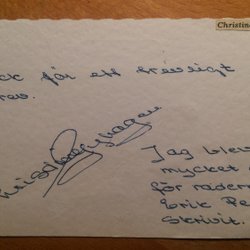 Christin
ck för ett trevligt
rev.
Jag blev
mycket
för raden
Erik Pe
skrivit.